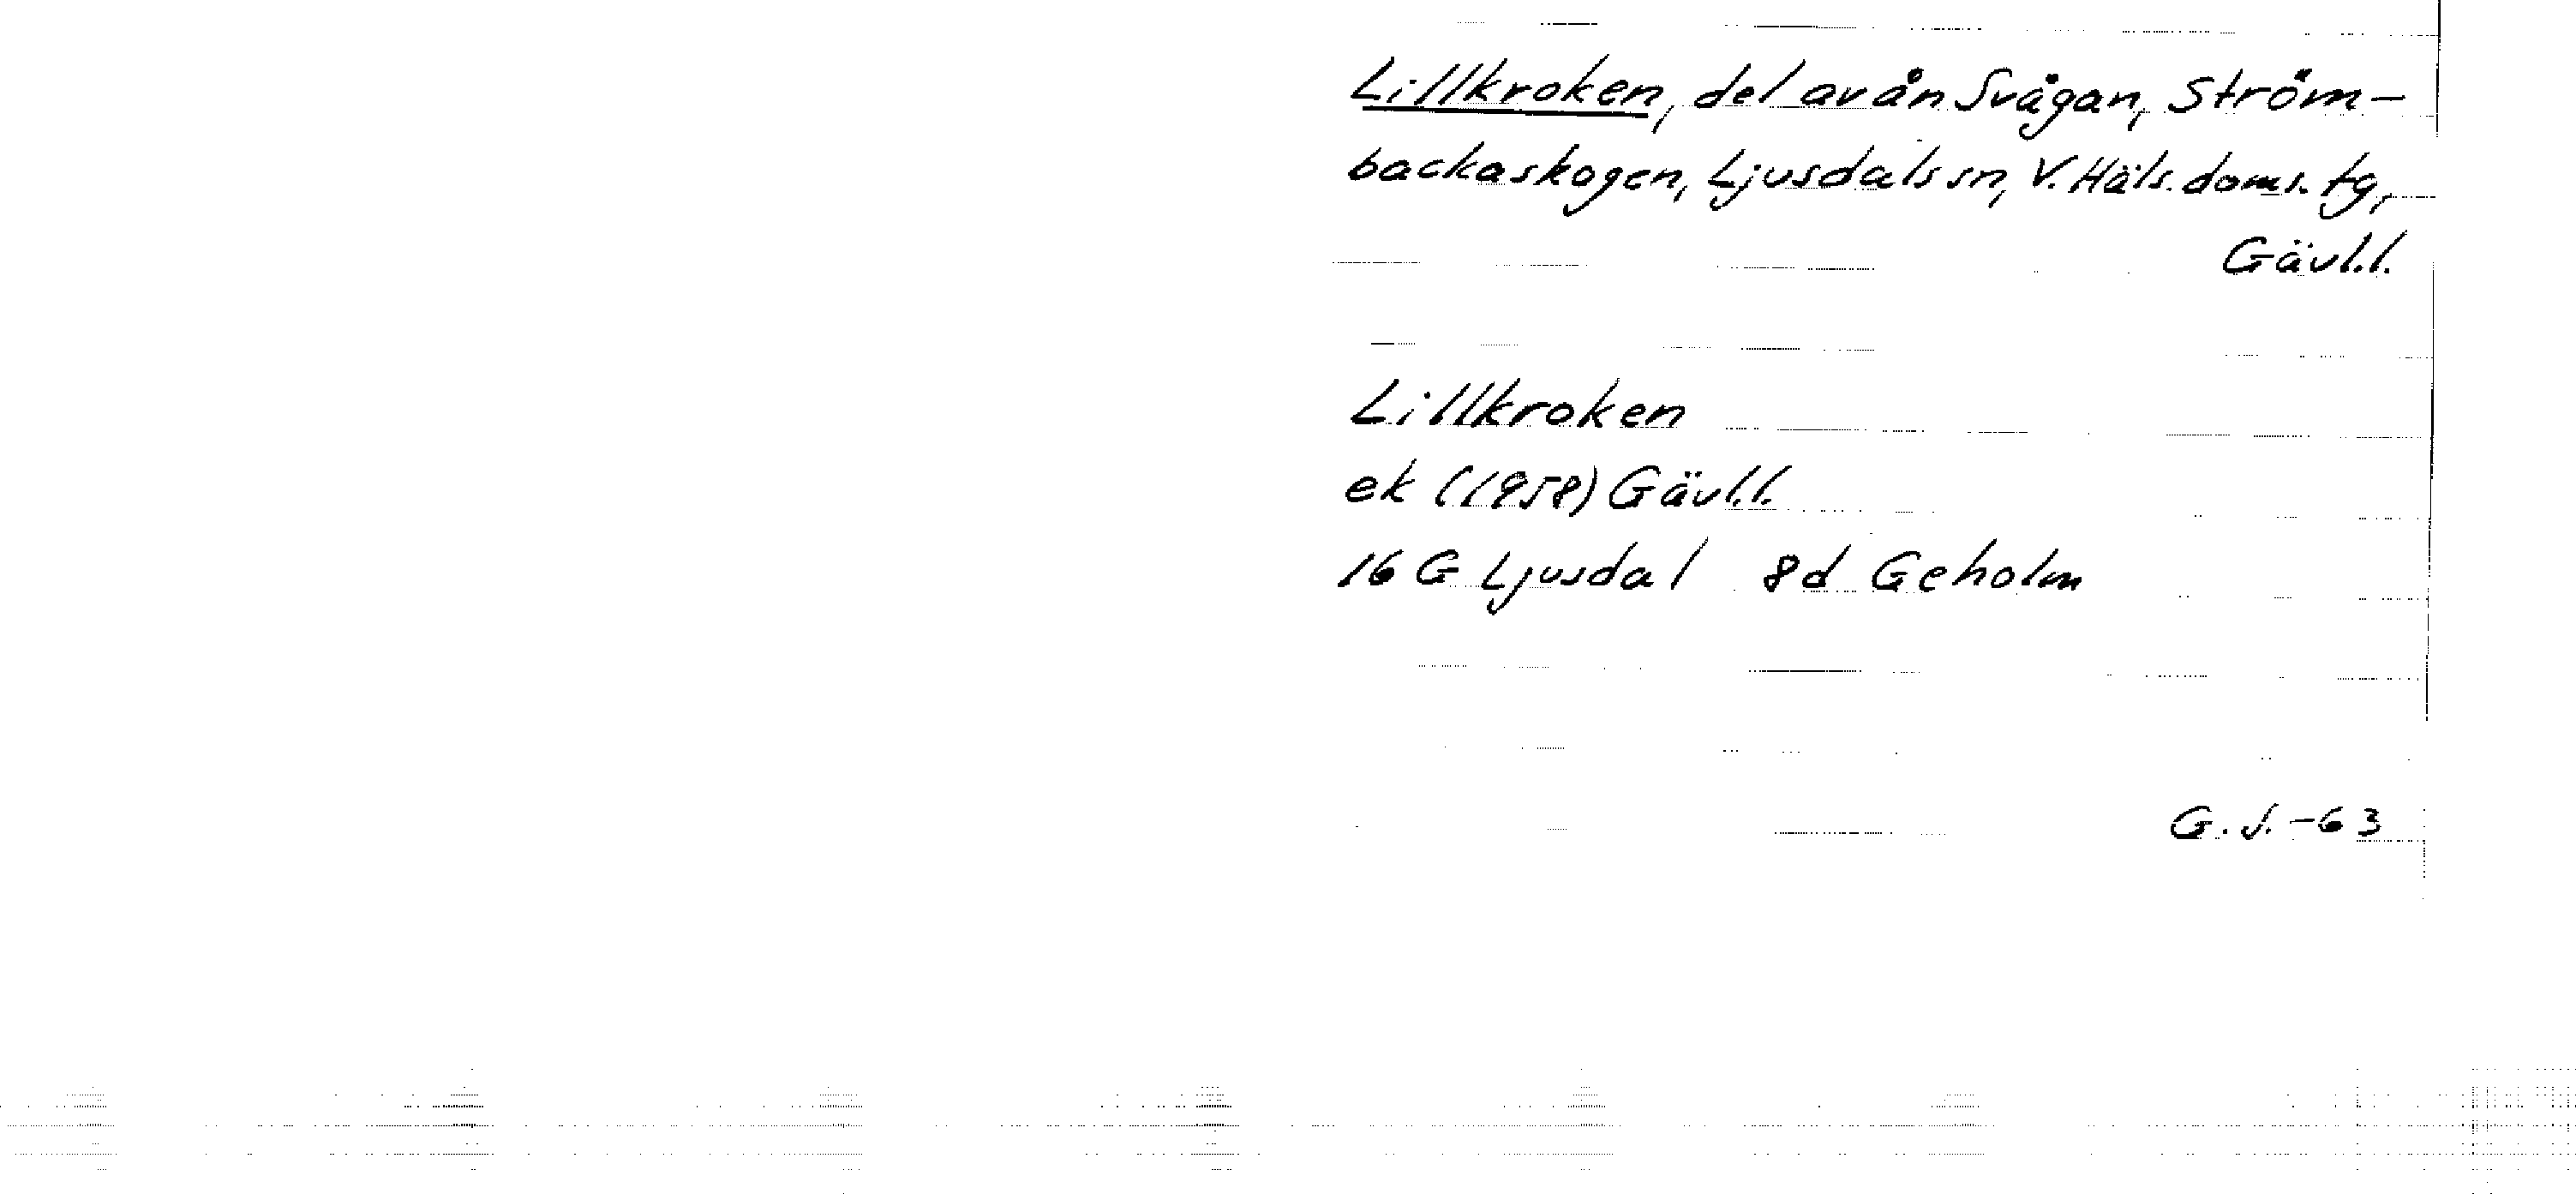 Lillkroken, del av ån Svågan, Ström-
backaskogen, Ljusdals sn, V. Häls. doms. tg,
Gävl.l.
Lillkroken
ek (1958) Gävl.l.
16 G Ljusdal 8d Geholm
G. J. -63